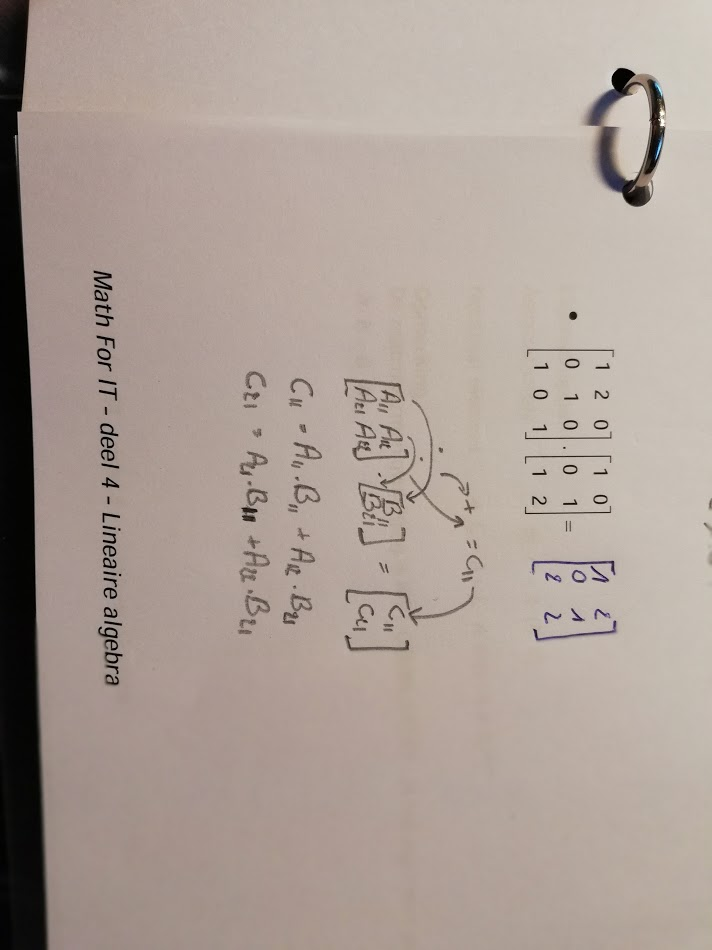 • [1 2 0] [1 0]   [1 2]
[0 1 0] . [0 1] = [0 1]
[1 0 1] [1 2]   [2 2]
. + = C₁₁
[A₁₁ A₁₂] . [B₁₁] = [C₁₁]
[A₂₁ A₂₂] [B₂₁] [C₂₁]
C₁₁ = A₁₁.B₁₁ + A₁₂.B₂₁
C₂₁ = A₂₁.B₁₁ + A₂₂.B₂₁
Math For IT – deel 4 – Lineaire algebra